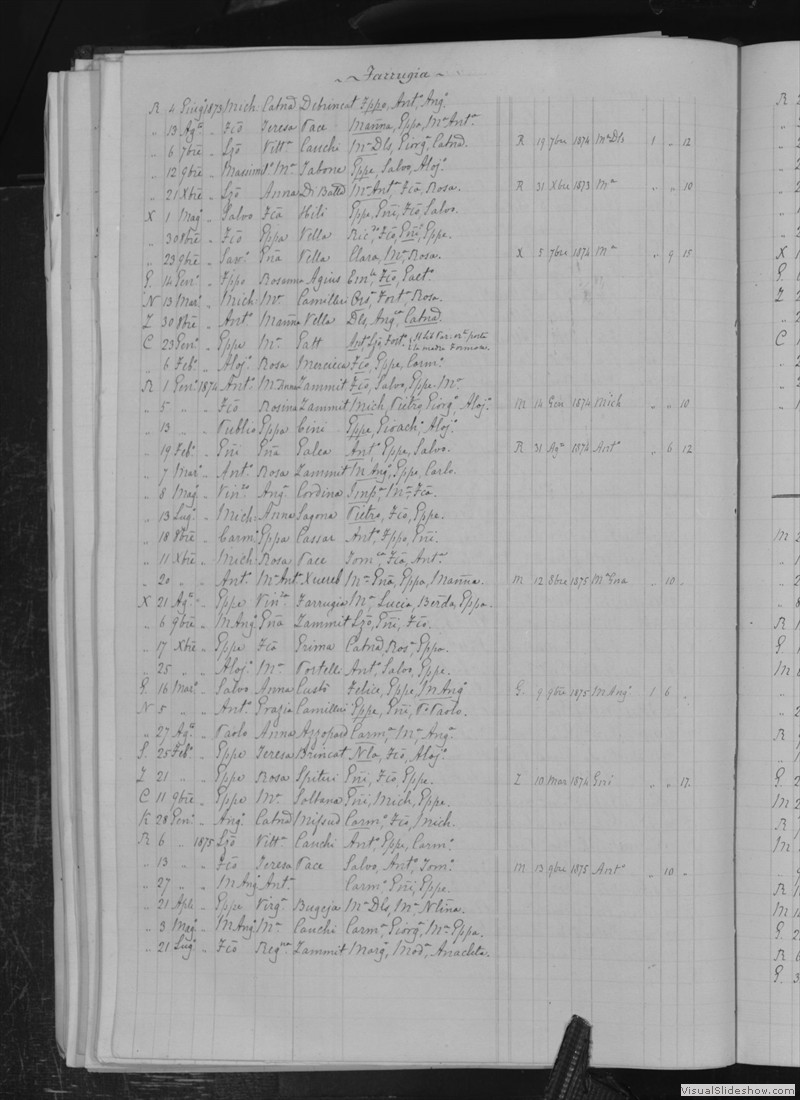 ~ Farrugia ~
R 4 Giug. 1873 Mich. Catnd Debrincat Fppo, Ant., Ang.
" 13 Ag. " Fco Teresa Pace Manna, Eppo, Ma Anta
" 6 7bre " Vitta Cauchi Ma Dls, Giorg. Catnd. R 19 7bre 1874 Ma Dls 1 " 12
" 12 9bre " Massimo Ma Tabone Eppe, Salvo, Aloj.
" 21 Xbre " Anna Di Ma Ant. Fca, Rosa. R 31 Xbre 1873 Ma " " 10
X 1 Mag. " Salvo Fca Hili Eppe, Eni, Fco, Salvo.
" 30 8bre " Fco Eppa Vella Ric. Fco, Eni, Eppe.
" 23 9bre " Sav. Ena Vella Clara, Ma Rosa. X 5 7bre 1874 Ma " 9 15
G. 14 Gen. " Fppo Rosanna Agius Em. Fco, Gaet.
N 13 Mar. " Mich. Ma Camilleri Ors. Fort. Rosa.
Z 30 8bre " Ant. Manna Vella Dls, Ang. Catnd.
C 23 Gen. " Eppe Ma Gatt Ant. Fort.
" 6 Feb. " Aloj. Rosa Mercieca Fco, Eppe, Carm.
R 1 Gen. 1874 Ant. Ma Anna Zammit Fco, Salvo, Eppe, Ma
" 5 " " Fco Rosina Zammit Mich, Pietro, Giorg. Aloj. M 14 Gen 1874 Mich " " 10
" 13 " " Publio Eppa Cini Eppe, Gioach. Aloj.
" 19 Feb. " Eni Ena Galea Ant. Eppe, Salvo. R 31 Ag. 1874 Ant. " 6 12
" 7 Mar. " Ant. Rosa Zammit M. Ang. Eppe, Carlo.
" 8 Mag. " Vin. Ang. Cordina Ma Fca.
" 13 Lug. " Mich. Anna Sagona Pietro, Fco, Eppe.
" 18 8bre " Carm. Eppa Cassar Ant. Fppo, Eni.
" 11 Xbre " Mich. Rosa Pace Tom. Fca, Ant.
" 20 " " Ant. Ma Ant. Xuereb Ma Ena, Eppa, Manna. M 12 8bre 1875 Ma Ena " 10 "
X 21 Ag. " Eppe Vin. Farrugia Ma Lucia, Eppa.
" 6 9bre " M. Ang. Ena Zammit Eni, Fca.
" 17 Xbre " Eppe Fca Grima Catnd, Ros. Eppa.
" 25 " " Aloj. Ma Portelli Ant. Salvo, Eppe.
G. 16 Mar. " Salvo Anna Cusbò Felice, Eppe, M Ang. G. 9 9bre 1875 M Ang. 1 6 "
N 5 " " Ant. Grazia Camilleri Eppe, Eni, P. Paolo.
" 27 Ag. " Paolo Anna Azzopard Carm. Ma Ang.
S. 25 Feb. " Eppe Teresa Brincat Nla, Fco, Aloj.
Z 21 " " Eppe Rosa Spiteri Eni, Fco, Eppe. Z 10 Mar 1874 Eni " " 17.
C 11 9bre " Eppe Ma Soltana Eni, Mich, Eppe.
K 28 Gen. " Ang. Catnd Mifsud Carm. Fco, Mich.
R 6 " 1875 Vitta Cauchi Ant. Eppe, Carm.
" 13 " " Fco Teresa Pace Salvo, Ant. Tom. M 13 9bre 1875 Ant. " 10 "
" 27 " " M. Ang. Ant. Carm. Eni, Eppe.
" 21 Apli. " Eppe Virg. Bugeja Ma Dls, Ma
" 3 Mag. " M. Ang. Ma Cauchi Carm. Giorg. Ma Eppa.
" 21 Lug. " Fco Reg. Zammit Marg. Mod. Anacleta.
VisualSlideshow.com